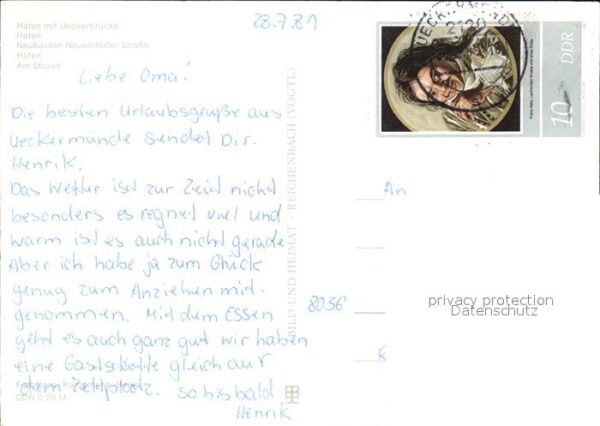 Hafen mit Ueckerbrücke
Hafen
Neubauten Neuendorfer Straße
Hafen
Am Strand
28.7.81
Liebe Oma!
Die besten Urlaubsgrüße aus
Ueckermünde sendet Dir.
Henrik.
Das Wetter ist zur Zeit nicht
besonders es regnet viel und
warm ist es auch nicht gerade
Aber ich habe ja zum Glück
genug zum Anziehen mit-
genommen. Mit dem Essen
geht es auch ganz gut wir haben
eine Gaststätte gleich auf
dem Zeltplatz. so bis bald
Henrik
DDR 0,20 M
BILD UND HEIMAT · REICHENBACH (VOGTL)
UECKERMÜNDE
2120
10
DDR
An
8056
privacy protection
Datenschutz